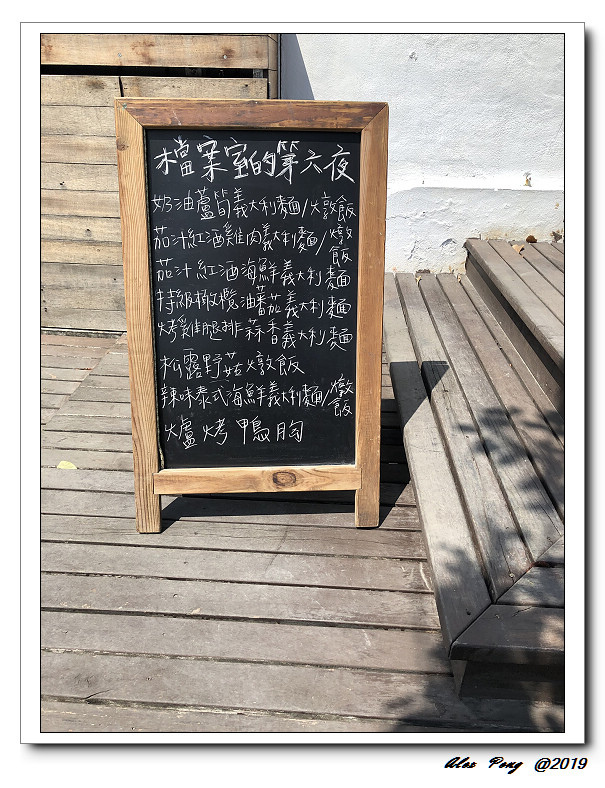 檔案室的第六夜
奶油蘆筍義大利麵/燉飯
茄汁紅酒雞肉義大利麵/燉飯
茄汁紅酒海鮮義大利麵
特級橄欖油蕃茄義大利麵
烤雞腿排蒜香義大利麵
松露野菇燉飯
辣味泰式海鮮義大利麵/燉飯
爐烤鴨胸
Alex Pong @2019